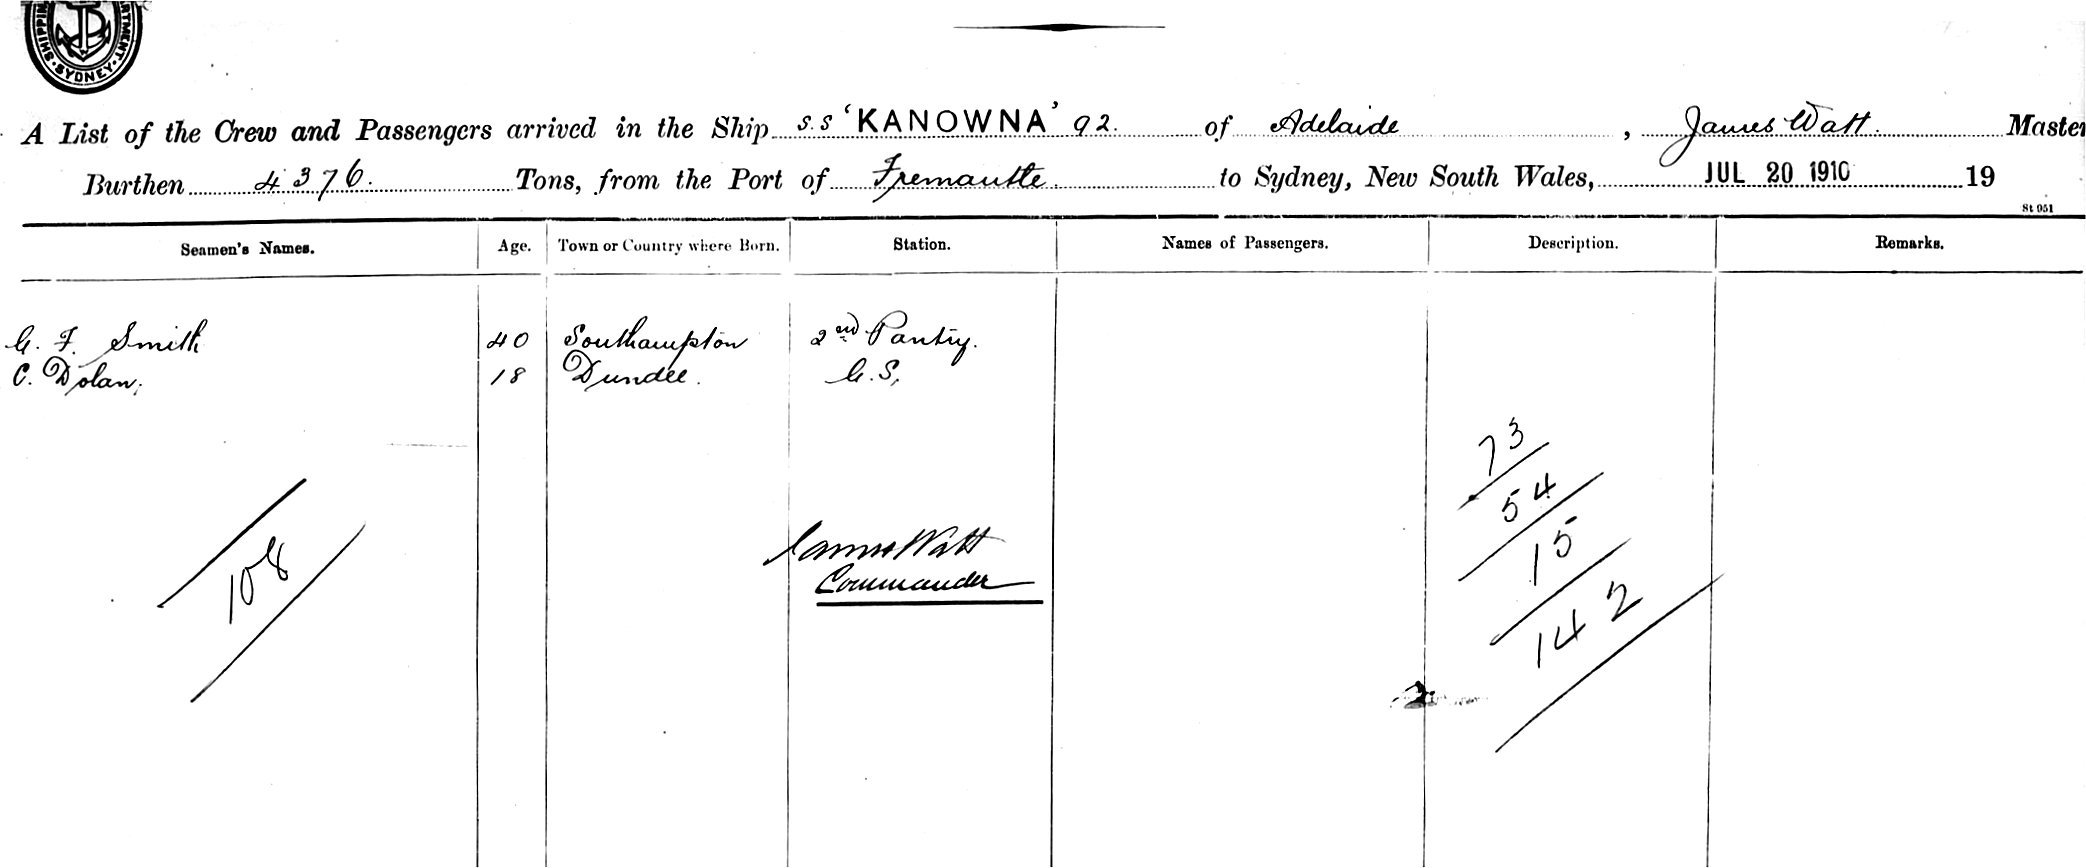 SHIPPIN
SYDNEY
RTMENT
A List of the Crew and Passengers arrived in the Ship S.S 'KANOWNA' 92. of Adelaide, James Watt. Master
Burthen 4376. Tons, from the Port of Fremantle. to Sydney, New South Wales, JUL 20 1910 19
St 051
Seamen's Names. Age. Town or Country where Born. Station. Names of Passengers. Description. Remarks.
G. F. Smith 40 Southampton 2nd Pantry.
C. Dolan, 18 Dundee. G.S,
73
54
15
142
108
James Watt
Commander